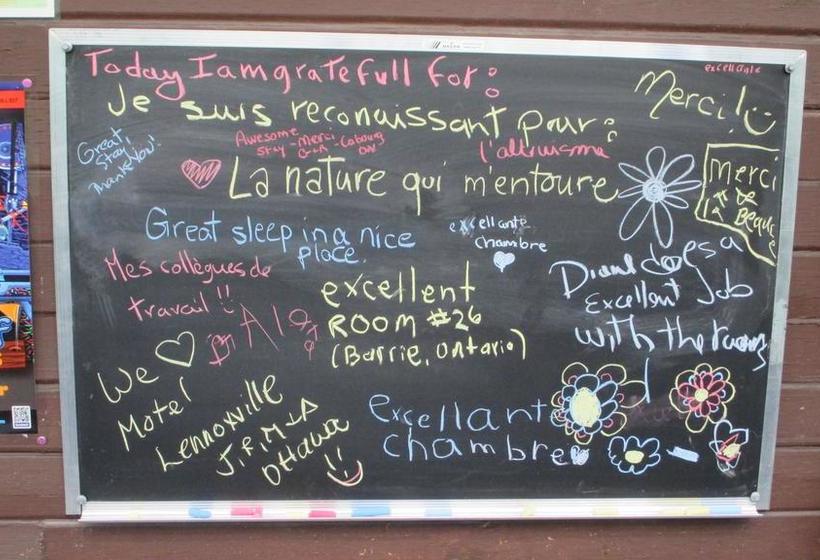 Today I am gratefull for:
excellante
Je suis reconaissant pour:
Merci!
Great
stay
Thank you!
Awesome
stay - Merci - Cobourg
ON
l'altruisme
La nature qui m'entoure
Merci
de
la Beauce
Great sleep in a nice
place.
excellante
chambre
Mes collègues de
travail !!
excellent
ROOM #26
(Barrie, Ontario)
Diane does a
Excellent Job
with the rooms
We
Motel
Lennoxville
J, R, M + A
Ottawa
excellante
chambre